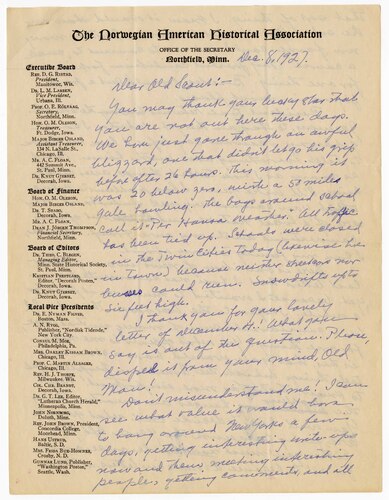 The Norwegian American Historical Association
OFFICE OF THE SECRETARY
Northfield, Minn.
Dec. 8, 1927.
Executive Board
REV. D. G. RISTAD,
President,
Manitowoc, Wis.
DR. L. M. LARSON,
Vice President,
Urbana, Ill.
PROF. O. E. RÖLVAAG,
Secretary,
Northfield, Minn.
HON. O. M. OLESON,
Treasurer,
Ft. Dodge, Iowa.
MAJOR BIRGER OSLAND,
Assistant Treasurer,
134 N. LaSalle St.,
Chicago, Ill.
MR. A. C. FLOAN,
442 Summit Ave.,
St. Paul, Minn.
DR. KNUT GJERSET,
Decorah, Iowa.
Board of Finance
HON. O. M. OLESON,
MAJOR BIRGER OSLAND,
DR. T. STABO,
Decorah, Iowa.
MR. A. C. FLOAN,
DEAN J. JÖRGEN THOMPSON,
Financial Secretary,
Northfield, Minn.
Board of Editors
DR. THEO. C. BLEGEN,
Managing Editor,
Minn. State Historical Society,
St. Paul, Minn.
KRISTIAN PRESTGARD,
Editor, "Decorah Posten,"
Decorah, Iowa.
DR. KNUT GJERSET,
Decorah, Iowa.
Local Vice Presidents
DR. E. NYMAN FIGVED,
Boston, Mass.
A. N. RYGG,
Publisher, "Nordisk Tidende,"
New York City
CONSUL M. MOE,
Philadelphia, Pa.
MRS. OAKLEY KISSAM BROWN,
Chicago, Ill.
PROF. C. MARTIN ALSAGER,
Chicago, Ill.
REV. H. J. THORPE,
Milwaukee, Wis.
CHR.
Decorah, Iowa.
DR. G. T. LEE, Editor,
"Lutheran Church Herald,"
Minneapolis, Minn.
JOHN
Duluth, Minn.
REV. JOHN BROWN, President,
Concordia College,
Moorhead, Minn.
HANS USTRUD,
Baltic, S. D.
MRS. FRIDA BUE-HOMNES,
Crosby, N. D.
GUNNAR LUND, Publisher,
"Washington Posten,"
Seattle, Wash.
Dear Old Scout:-
You may thank your lucky star that
you are not out here these days.
We have just gone through an awful
blizzard, one that didn't let go his grip
before after 36 hours. This morning it
was 20 below zero, with a 50 miles
gale howling. The boys around school
call it Per Hansa weather. All traffic
has been tied up. Schools were closed
in the Twin Cities today (likewise here
in town) because neither streetcars nor
busses could run. Snowdrifts up to
six feet high.
I thank you for your lovely
letter of December 4! What you
say is out of the question. Please,
dispel it from your mind, Old
Man!
Don't misunderstand me! I can
see what value it would have
to hang around New York a few
days, getting interesting write-ups
now and then, meeting interesting
people, getting comments, and all